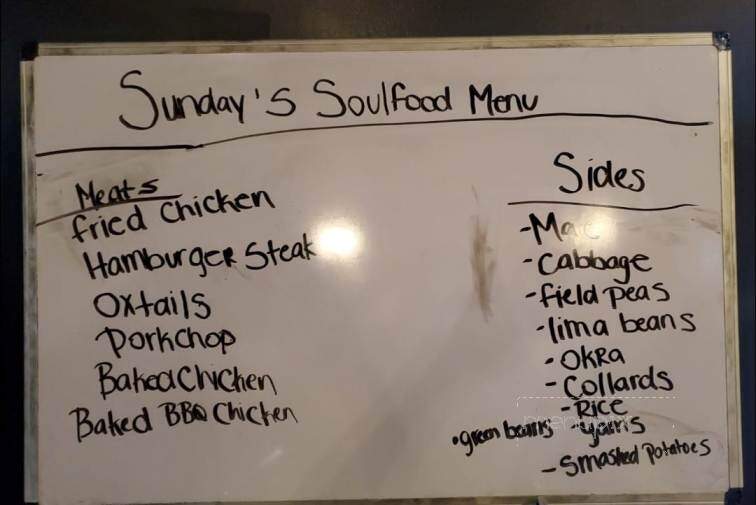 Sunday's Soulfood Menu
Meats
fried Chicken
Hamburger Steak
Oxtails
Porkchop
Baked Chicken
Baked BBQ Chicken
Sides
-Mac
-Cabbage
-field peas
-lima beans
-OKRA
-Collards
-Rice
•green beans -yams
-Smashed Potatoes